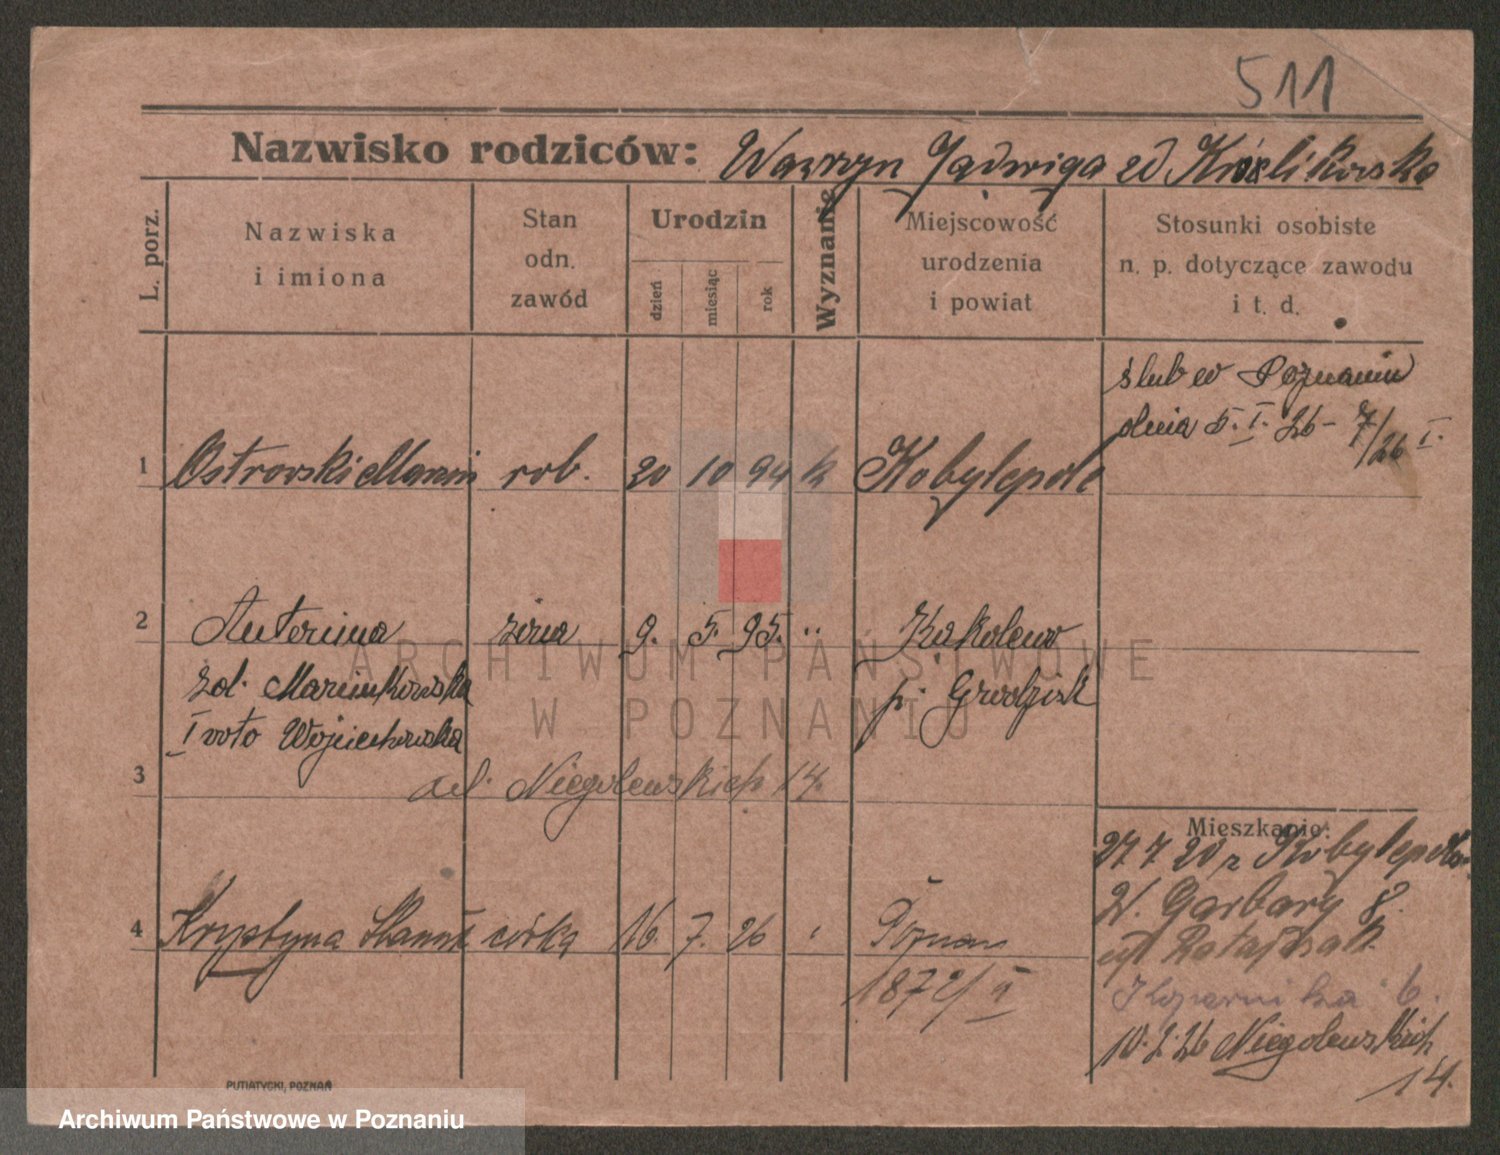 511
Nazwisko rodziców: Wawrzyn Jadwiga zd Królikowska
L. porz.
Nazwiska i imiona
Stan odn. zawód
Urodzin
dzień
miesiąc
rok
Wyznanie
Miejscowość urodzenia i powiat
Stosunki osobiste n. p. dotyczące zawodu i t. d.
ślub w Poznaniu
dnia 5. I. 26 - 7/26 I.
1 Ostrovski Marcin rob. 20 10 94 k Kobylepole
2 Antonina żona 9. 5. 95. " Kąkolewo
zd. Marcinkowska p. Grodzisk
I voto Wojciechowska
3 ul. Niegolewskich 14.
Mieszkanie:
27 7 20 z Kobylepola
W. Garbary 8.
4 Krystyna córka 16. 7. 26 " Poznań
1872/II
Ratajczak
Kopernika 6.
10. 2. 26 Niegolewskich
14.
PUTIATYCKI, POZNAŃ
ARCHIWUM PAŃSTWOWE
W POZNANIU
Archiwum Państwowe w Poznaniu